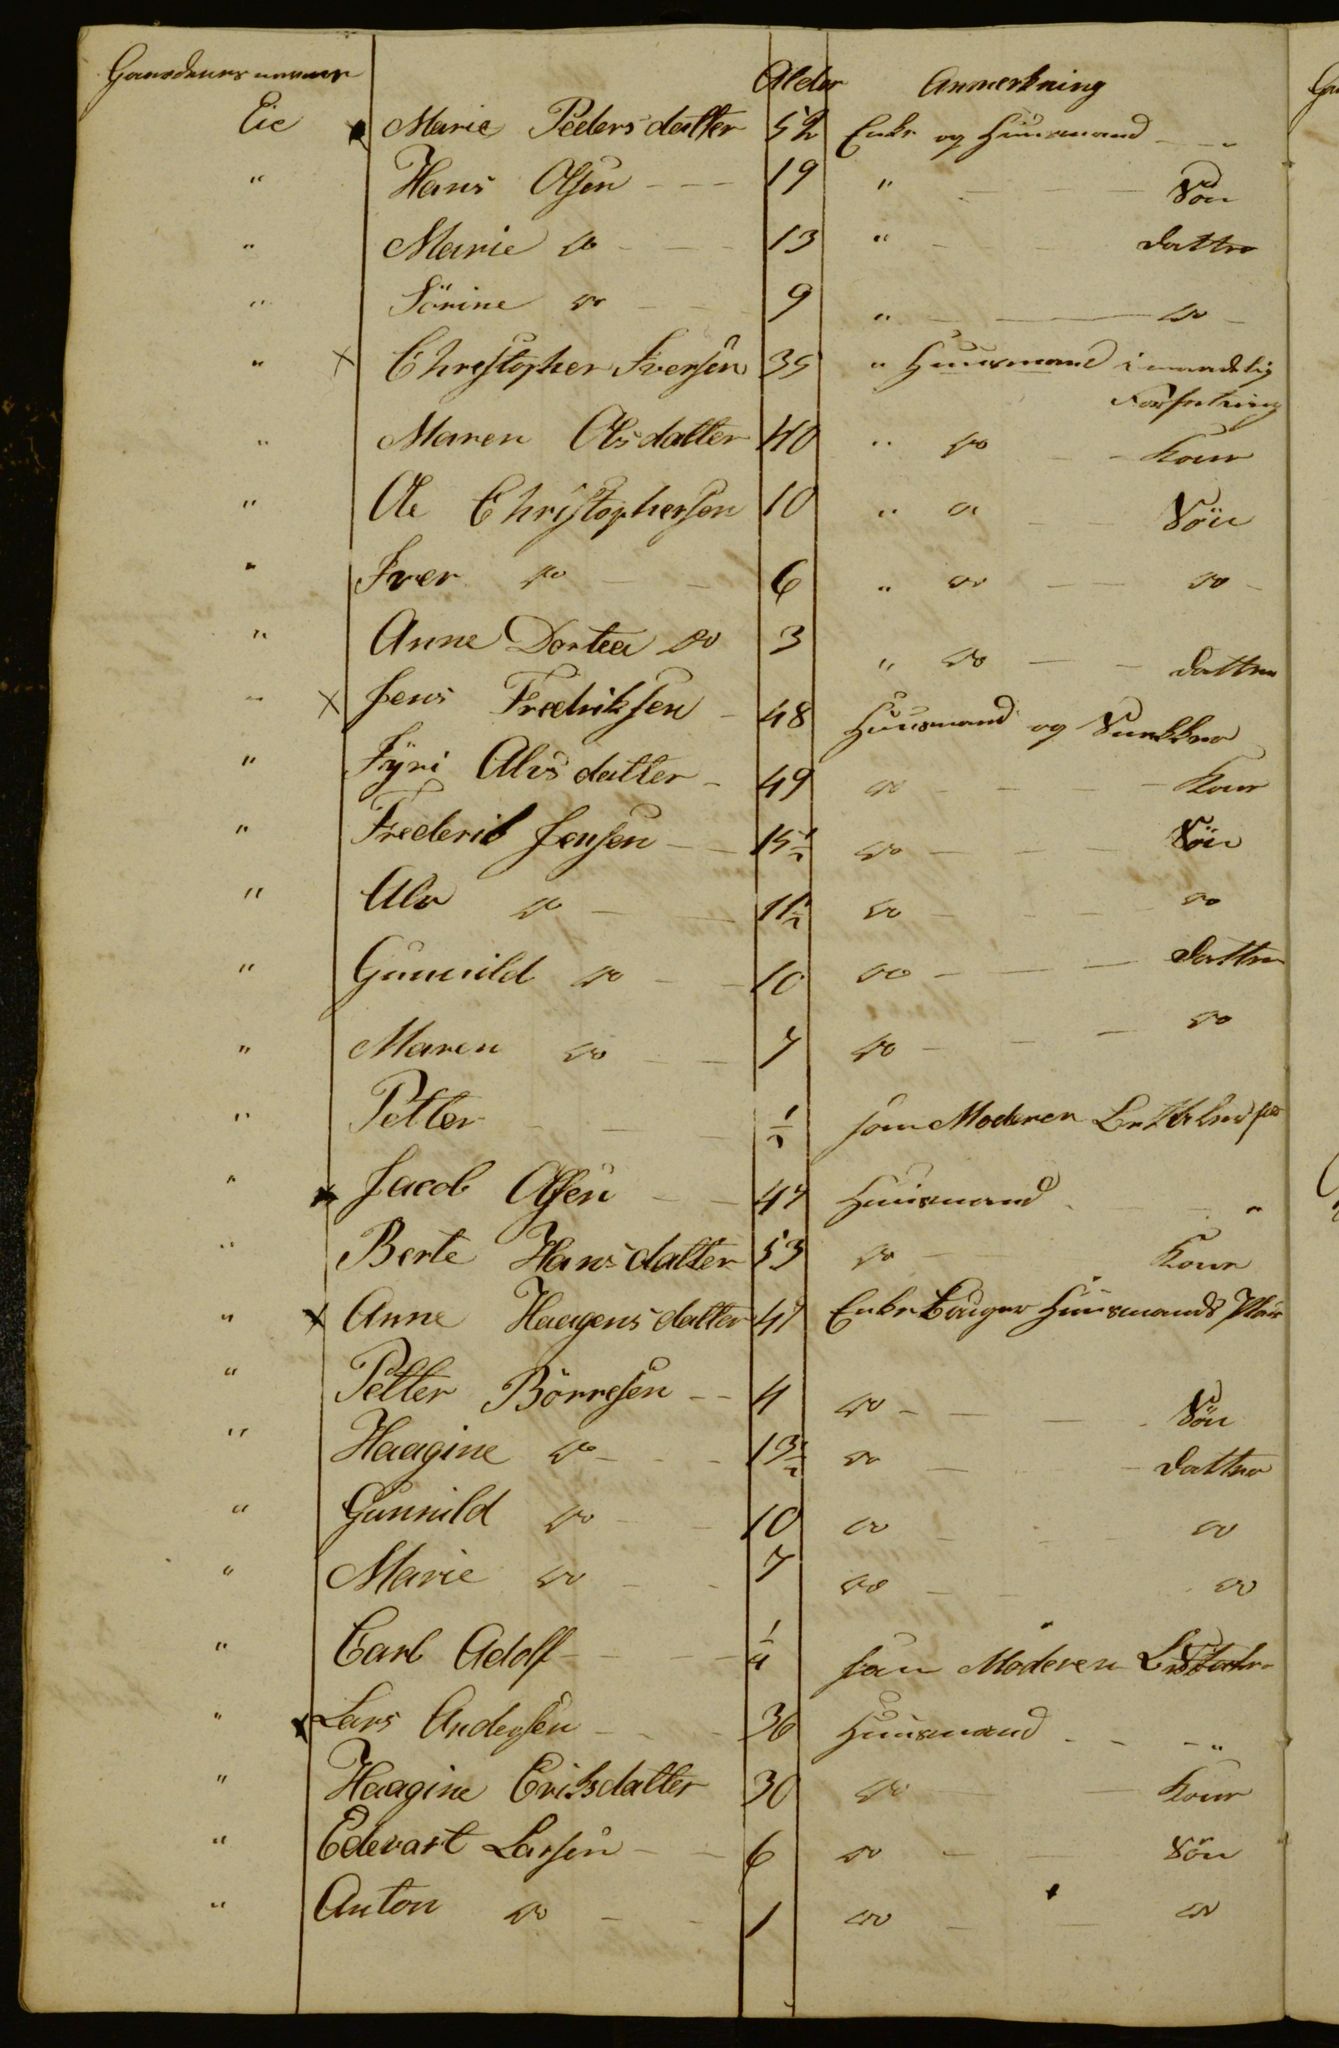 Gaardenes navne Alder Anmerkning
Eie x Marie Peders datter 52 Enke og Huusmand - - "
" Hans Olsen - - - 19 " - - Søn
" Marie do - - - 13 " - - datter
" Sørine do - - 9 " - - do -
" x Christopher Iversen 35 " Huusmand i maadelig
Forfatning
" Maren Olsdatter 40 " do - - Kone
" Ole Christophersen 10 " do - - Søn
" Iver do - - 6 " do - - do -
" Anne Dortea do 3 " do - - datter
" x Jens Fredriksen - 48 Huusmand og
" Jyri Alvsdatter - 49 do - - - Kone
" Frederik Jensen - - 15 1/2 do - - - Søn
" Alv do - - 11 1/2 do - - - do
" Gunnild do - - 10 do - - - datter
" Maren do - - 7 do - - - do
" Petter - - - 1/2 som Moderen
" x Jacob Olsen - - 47 Huusmand - - "
" Berte Hansdatter 53 do - Kone
" x Anne Haagensdatter 47 Enke bruger Huusmands Plads
" Petter Børresen - - 4 do - - - Søn
" Haagine do - - - 13 1/2 do - - - datter
" Gunnild do - - 10 do - - - do
" Marie do - - 7 do - - do
" Carl Adolf - - - - 1/4 som Moderen
" x Lars Andersen - - - 36 Huusmand - - - "
" Haagine Eriksdatter 30 do - - Kone
" Edevart Larsen - - 6 do - - Søn
" Anton do - - 1 do - - do